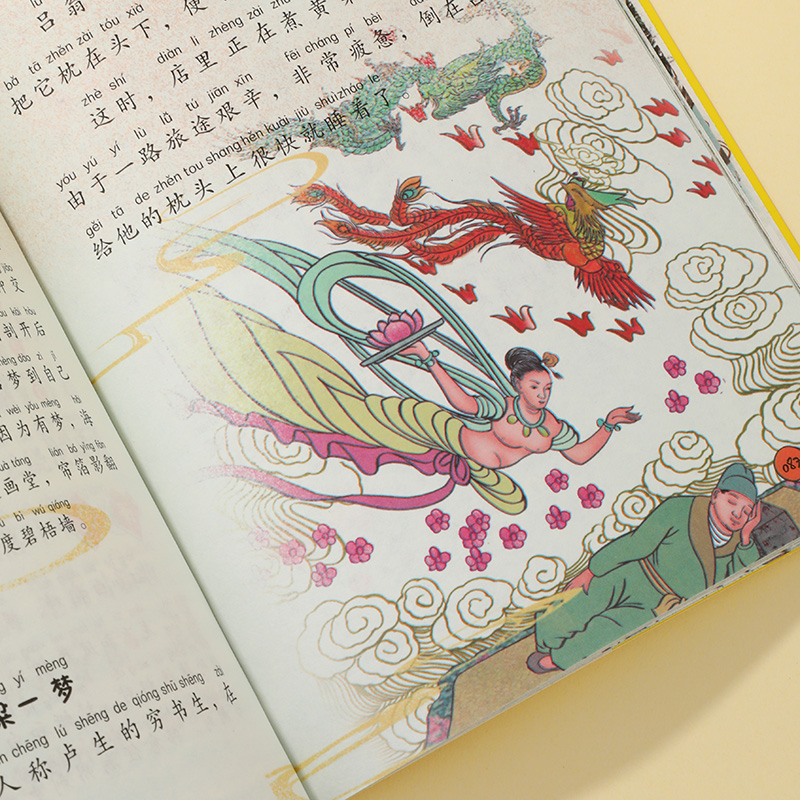 交
剖开后
mèng dào zì jǐ
梦到自己
wèi yǒu mèng
因为有梦，海
huà táng lián bó yǐng fān
画堂，帘箔影翻
bì wú qiáng
度碧梧墙。
yí mèng
一梦
chēng lú shēng de qióng shū shēng zài
人称卢生的穷书生，在
吕翁
bǎ tā zhěn zài tóu xià
把它枕在头下，便
zhè shí diàn lǐ zhèng zài zhǔ
这时，店里正在煮黄
yóu yú yí lù lǚ tú jiān xīn fēi cháng pí bèi
由于一路旅途艰辛，非常疲惫，倒在
gěi tā de zhěn tou shang hěn kuài jiù shuì zháo le
给他的枕头上很快就睡着了。
087